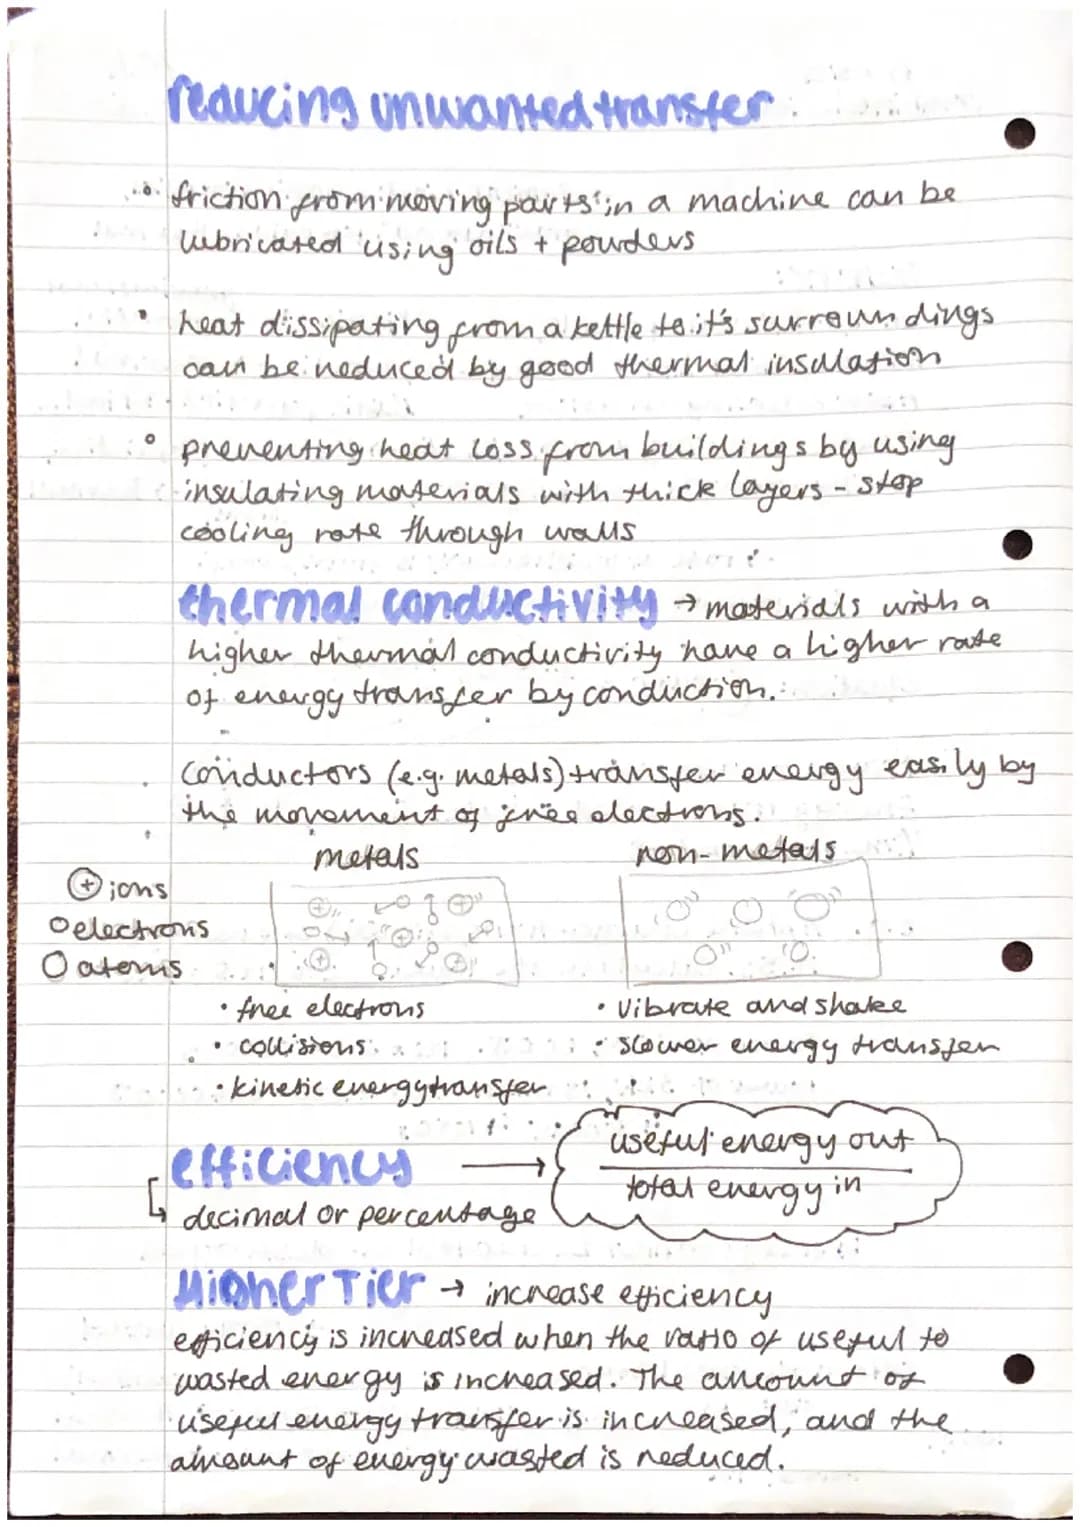 reducing unwanted transfer
friction from moving parts in a machine can be
lubricated using oils + powders
heat dissipating from a kettle to it's surroundings
can be reduced by good thermal insulation
preventing heat loss from buildings by using
insulating materials with thick layers - stop
cooling rate through walls
thermal conductivity → materials with a
higher thermal conductivity have a higher rate
of energy transfer by conduction.
Conductors (e.g. metals) transfer energy easily by
the movement of free electrons.
metals non-metals
+ ions
electrons
atoms
• free electrons • vibrate and shake
• collisions • slower energy transfer
• kinetic energy transfer
efficiency → useful energy out
total energy in
decimal or percentage
Higher Tier → increase efficiency
efficiency is increased when the ratio of useful to
wasted energy is increased. The amount of
useful energy transfer is increased, and the
amount of energy wasted is reduced.